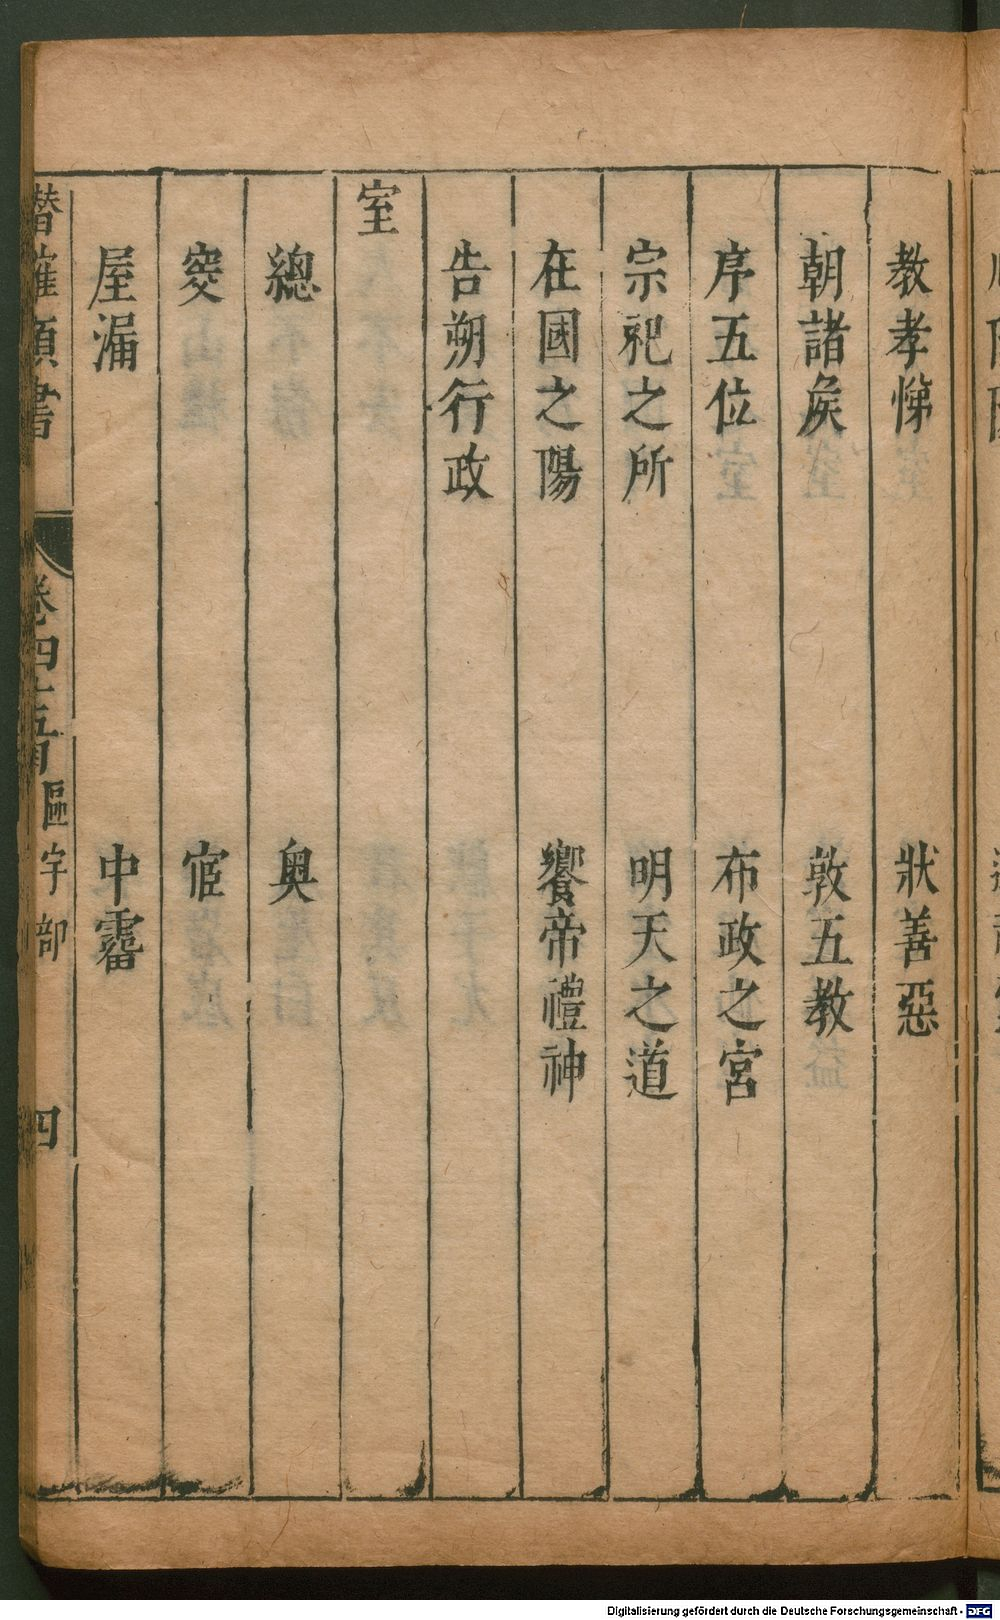 教孝悌 狀善惡
朝諸侯 敦五教
序五位 布政之宮
宗祀之所 明天之道
在國之陽 饗帝禮神
告朔行政
室
總 奧
窔 宧
屋漏 中霤
潛確類書 卷四十五目 區宇部 四
Digitalisierung gefördert durch die Deutsche Forschungsgemeinschaft - DFG